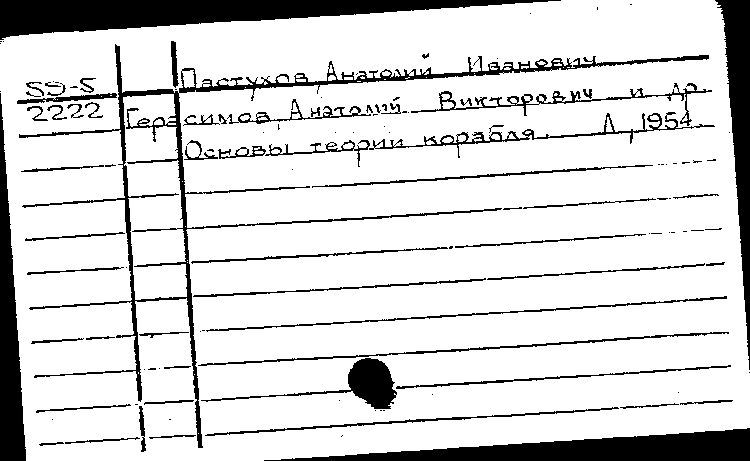 59-5 Пастухов, Анатолий Иванович
2222 Герасимов, Анатолий Викторович и др.
Основы теории корабля. Л, 1954.